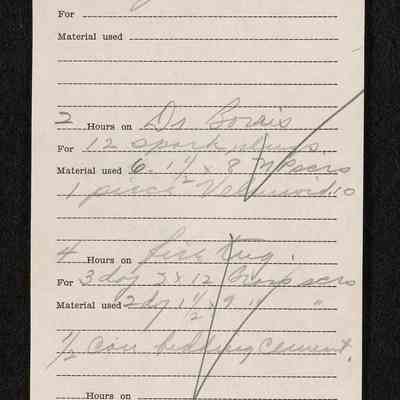 For
Material used
2 Hours on Dr Bowis
For 12 spark plugs
Material used 6. 1 1/2 x 8
1 piece
4 Hours on
For 3 doz x 12 scrs
Material used 2 dz 1 1/2 x 9 " "
1/2 Can bedding Cement.
Hours on